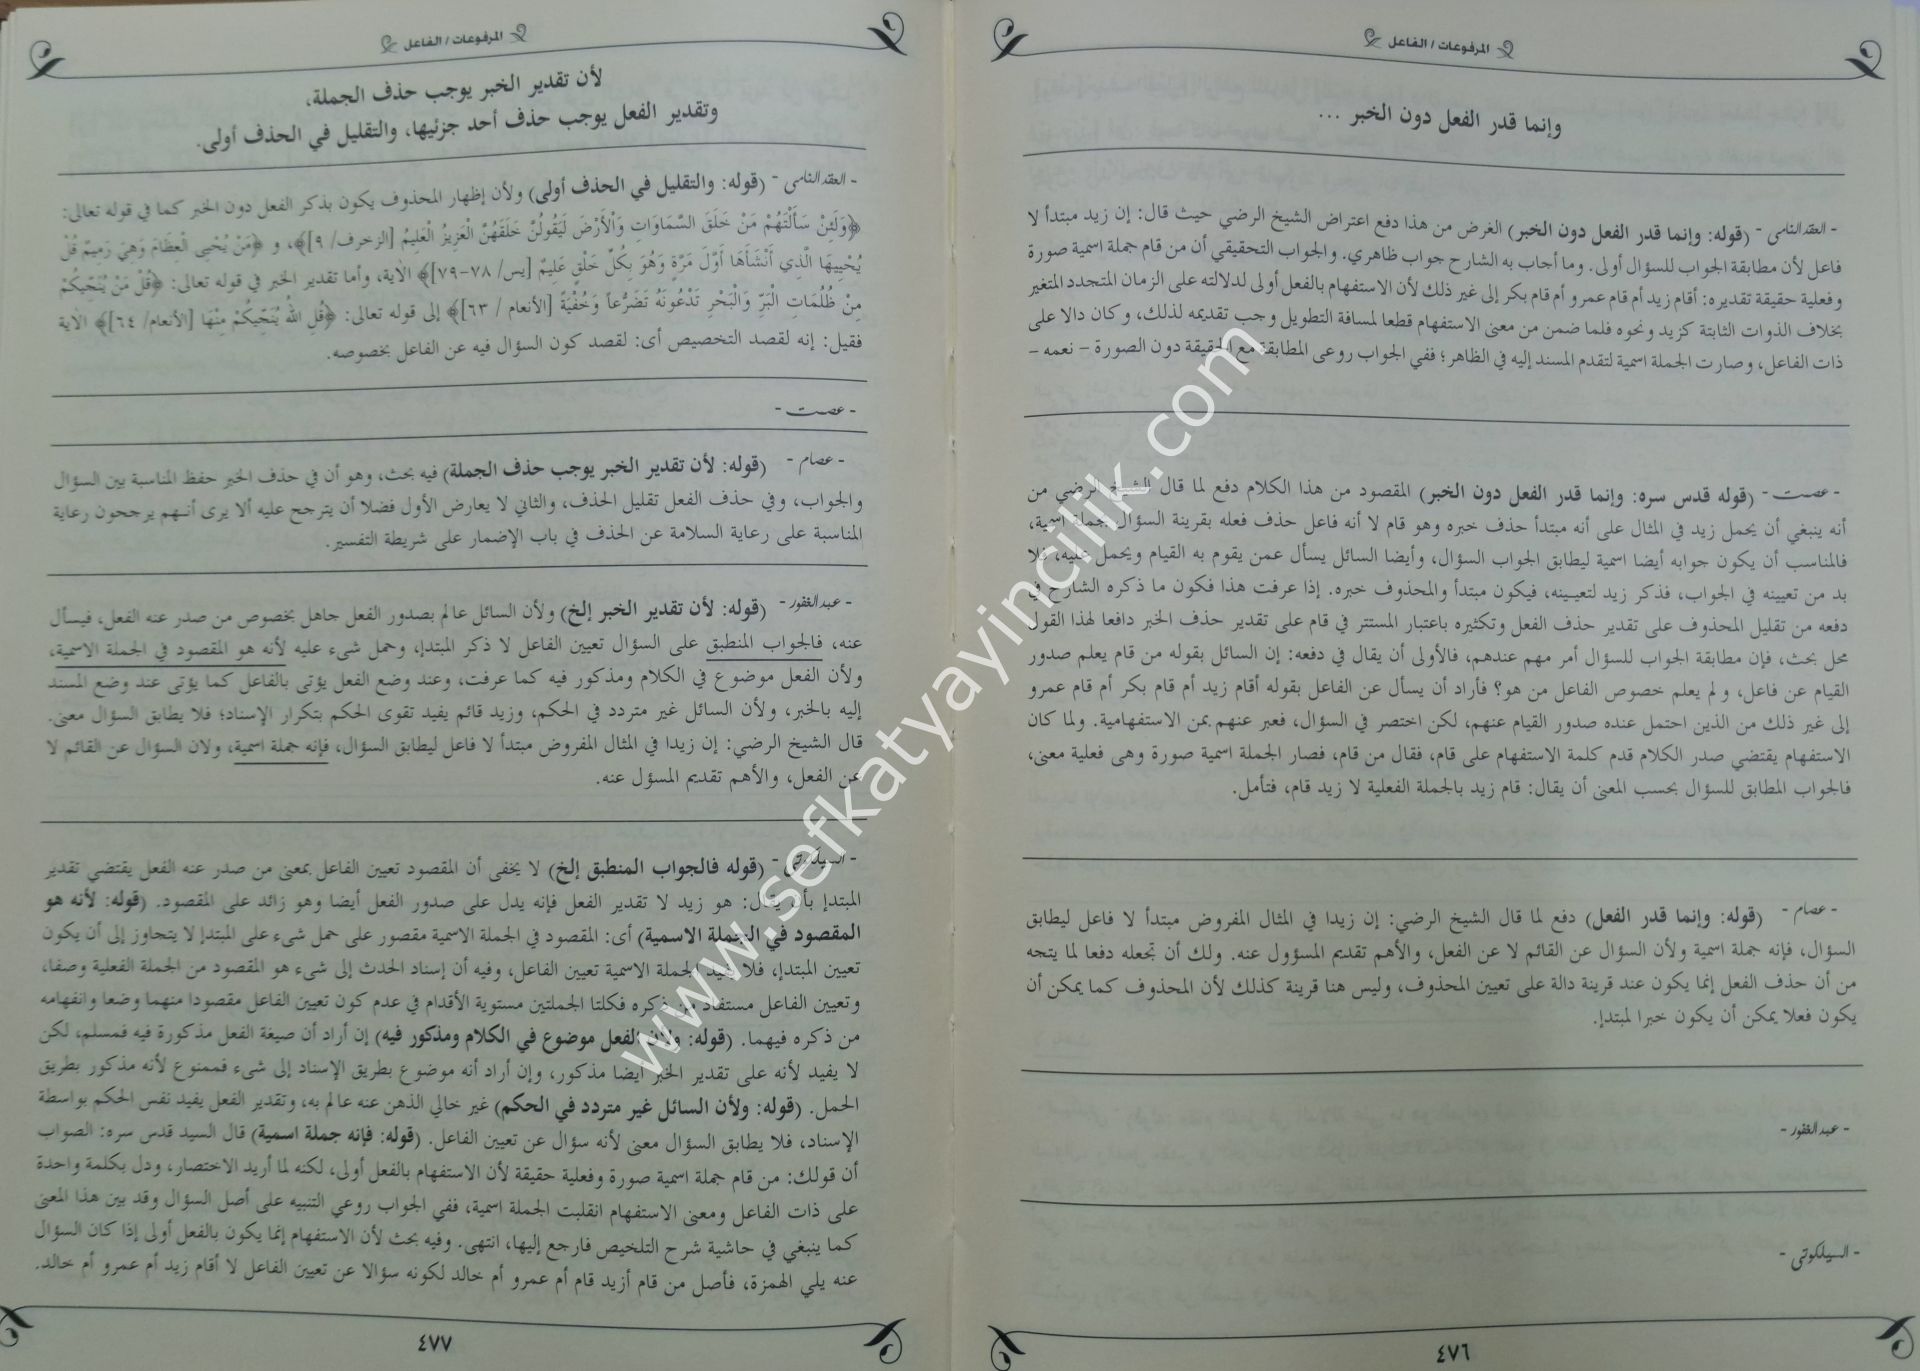 المرفوعات/ الفاعل
وإنما قدر الفعل دون الخبر ...
- العقد النامى - (قوله: وإنما قدر الفعل دون الخبر) الغرض من هذا دفع اعتراض الشيخ الرضي حيث قال: إن زيد مبتدأ لا
فاعل لأن مطابقة الجواب للسؤال أولى. وما أجاب به الشارح جواب ظاهري. والجواب التحقيقي أن من قام جملة اسمية صورة
وفعلية حقيقة تقديره: أقام زيد أم قام عمرو أم قام بكر إلى غير ذلك لأن الاستفهام بالفعل أولى لدلالته على الزمان المتجدد المتغير
بخلاف الذوات الثابتة كزيد ونحوه فلما ضمن من معنى الاستفهام قطعا لمسافة التطويل وجب تقديمه لذلك، وكان دالا على
ذات الفاعل، وصارت الجملة اسمية لتقدم المسند إليه في الظاهر؛ ففي الجواب روعى المطابقة مع الحقيقة دون الصورة - نعمه -
- عصمت - (قوله قدس سره: وإنما قدر الفعل دون الخبر) المقصود من هذا الكلام دفع لما قال الشيخ الرضي من
أنه ينبغي أن يحمل زيد في المثال على أنه مبتدأ حذف خبره وهو قام لا أنه فاعل حذف فعله بقرينة السؤال بجملة اسمية،
فالمناسب أن يكون جوابه أيضا اسمية ليطابق الجواب السؤال، وأيضا السائل يسأل عمن يقوم به القيام ويحمل عليه، فلا
بد من تعيينه في الجواب، فذكر زيد لتعيينه، فيكون مبتدأ والمحذوف خبره. إذا عرفت هذا فكون ما ذكره الشارح في
دفعه من تقليل المحذوف على تقدير حذف الفعل وتكثيره باعتبار المستتر في قام على تقدير حذف الخبر دافعا لهذا القول
محل بحث، فإن مطابقة الجواب للسؤال أمر مهم عندهم، فالأولى أن يقال في دفعه: إن السائل بقوله من قام يعلم صدور
القيام عن فاعل، ولم يعلم خصوص الفاعل من هو؟ فأراد أن يسأل عن الفاعل بقوله أقام زيد أم قام بكر أم قام عمرو
إلى غير ذلك من الذين احتمل عنده صدور القيام عنهم، لكن اختصر في السؤال، فعبر عنهم بمن الاستفهامية. ولما كان
الاستفهام يقتضي صدر الكلام قدم كلمة الاستفهام على قام، فقال من قام، فصار الجملة اسمية صورة وهى فعلية معنى،
فالجواب المطابق للسؤال بحسب المعنى أن يقال: قام زيد بالجملة الفعلية لا زيد قام، فتأمل.
- عصام - (قوله: وإنما قدر الفعل) دفع لما قال الشيخ الرضي: إن زيدا في المثال المفروض مبتدأ لا فاعل ليطابق
السؤال، فإنه جملة اسمية ولأن السؤال عن القائم لا عن الفعل، والأهم تقديم المسؤول عنه. ولك أن تجعله دفعا لما يتجه
من أن حذف الفعل إنما يكون عند قرينة دالة على تعيين المحذوف، وليس هنا قرينة كذلك لأن المحذوف كما يمكن أن
يكون فعلا يمكن أن يكون خبرا لمبتدإ.
- عبد الغفور -
- السيلكوتي -
٤٧٦
المرفوعات/ الفاعل
لأن تقدير الخبر يوجب حذف الجملة،
وتقدير الفعل يوجب حذف أحد جزئيها، والتقليل في الحذف أولى.
- العقد النامى - (قوله: والتقليل في الحذف أولى) ولأن إظهار المحذوف يكون بذكر الفعل دون الخبر كما في قوله تعالى:
﴿وَلَئِنْ سَأَلْتَهُمْ مَنْ خَلَقَ السَّمَاوَاتِ وَالْأَرْضَ لَيَقُولُنَّ خَلَقَهُنَّ الْعَزِيزُ الْعَلِيمُ [الزخرف/ ٩]﴾، و ﴿مَنْ يُحْيِي الْعِظَامَ وَهِيَ رَمِيمٌ قُلْ
يُحْيِيهَا الَّذِي أَنْشَأَهَا أَوَّلَ مَرَّةٍ وَهُوَ بِكُلِّ خَلْقٍ عَلِيمٌ [يس/ ٧٨-٧٩]﴾ الآية، وأما تقدير الخبر في قوله تعالى: ﴿قُلْ مَنْ يُنَجِّيكُمْ
مِنْ ظُلُمَاتِ الْبَرِّ وَالْبَحْرِ تَدْعُونَهُ تَضَرُّعاً وَخُفْيَةً [الأنعام / ٦٣]﴾ إلى قوله تعالى: ﴿قُلِ اللهُ يُنَجِّيكُمْ مِنْهَا [الأنعام/ ٦٤]﴾ الآية
فقيل: إنه لقصد التخصيص أى: لقصد كون السؤال فيه عن الفاعل بخصوصه.
- عصمت -
- عصام - (قوله: لأن تقدير الخبر يوجب حذف الجملة) فيه بحث، وهو أن في حذف الخبر حفظ المناسبة بين السؤال
والجواب، وفي حذف الفعل تقليل الحذف، والثاني لا يعارض الأول فضلا أن يترجح عليه ألا يرى أنهم يرجحون رعاية
المناسبة على رعاية السلامة عن الحذف في باب الإضمار على شريطة التفسير.
- عبد الغفور - (قوله: لأن تقدير الخبر إلخ) ولأن السائل عالم بصدور الفعل جاهل بخصوص من صدر عنه الفعل، فيسأل
عنه، فالجواب المنطبق على السؤال تعيين الفاعل لا ذكر المبتدإ، وحمل شىء عليه لأنه هو المقصود في الجملة الاسمية،
ولأن الفعل موضوع في الكلام ومذكور فيه كما عرفت، وعند وضع الفعل يؤتى بالفاعل كما يؤتى عند وضع المسند
إليه بالخبر، ولأن السائل غير متردد في الحكم، وزيد قائم يفيد تقوى الحكم بتكرار الإسناد؛ فلا يطابق السؤال معنى.
قال الشيخ الرضي: إن زيدا في المثال المفروض مبتدأ لا فاعل ليطابق السؤال، فإنه جملة اسمية، ولان السؤال عن القائم لا
عن الفعل، والأهم تقديم المسؤل عنه.
- السيلكوتي - (قوله فالجواب المنطبق إلخ) لا يخفى أن المقصود تعيين الفاعل بمعنى من صدر عنه الفعل يقتضي تقدير
المبتدإ بأن يقال: هو زيد لا تقدير الفعل فإنه يدل على صدور الفعل أيضا وهو زائد على المقصود. (قوله: لأنه هو
المقصود في الجملة الاسمية) أى: المقصود في الجملة الاسمية مقصور على حمل شىء على المبتدإ لا يتجاوز إلى أن يكون
تعيين المبتدإ، فلا يفيد الجملة الاسمية تعيين الفاعل، وفيه أن إسناد الحدث إلى شىء هو المقصود من الجملة الفعلية وصفا،
وتعيين الفاعل مستفاد من ذكره فكلتا الجملتين مستوية الأقدام في عدم كون تعيين الفاعل مقصودا منهما وضعا وانفهامه
من ذكره فيهما. (قوله: ولأن الفعل موضوع في الكلام ومذكور فيه) إن أراد أن صيغة الفعل مذكورة فيه فمسلم، لكن
لا يفيد لأنه على تقدير الخبر أيضا مذكور، وإن أراد أنه موضوع بطريق الإسناد إلى شىء فممنوع لأنه مذكور بطريق
الحمل. (قوله: ولأن السائل غير متردد في الحكم) غير خالي الذهن عنه عالم به، وتقدير الفعل يفيد نفس الحكم بواسطة
الإسناد، فلا يطابق السؤال معنى لأنه سؤال عن تعيين الفاعل. (قوله: فإنه جملة اسمية) قال السيد قدس سره: الصواب
أن قولك: من قام جملة اسمية صورة وفعلية حقيقة لأن الاستفهام بالفعل أولى، لكنه لما أريد الاختصار، ودل بكلمة واحدة
على ذات الفاعل ومعنى الاستفهام انقلبت الجملة اسمية، ففي الجواب روعي التنبيه على أصل السؤال وقد بين هذا المعنى
كما ينبغي في حاشية شرح التلخيص فارجع إليها، انتهى. وفيه بحث لأن الاستفهام إنما يكون بالفعل أولى إذا كان السؤال
عنه يلي الهمزة، فأصل من قام أزيد قام أم عمرو أم خالد لكونه سؤالا عن تعيين الفاعل لا أقام زيد أم عمرو أم خالد.
٤٧٧
www.sefkatyayincilik.com